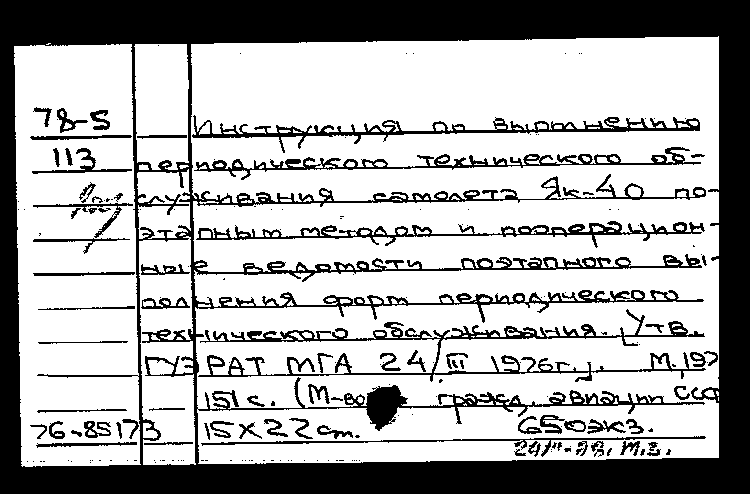 78-5 Инструкция по выполнению
113 периодического технического об-
служивания самолета Як-40 по-
этапным методом и пооперацион-
ные ведомости поэтапного вы-
полнения форм периодического
технического обслуживания. [Утв.
ГУЭРАТ МГА 24/III 1976г.]. М., 197
151 с. (М-во гражд. авиации ССС
76-85173 15X22 см. 650экз.